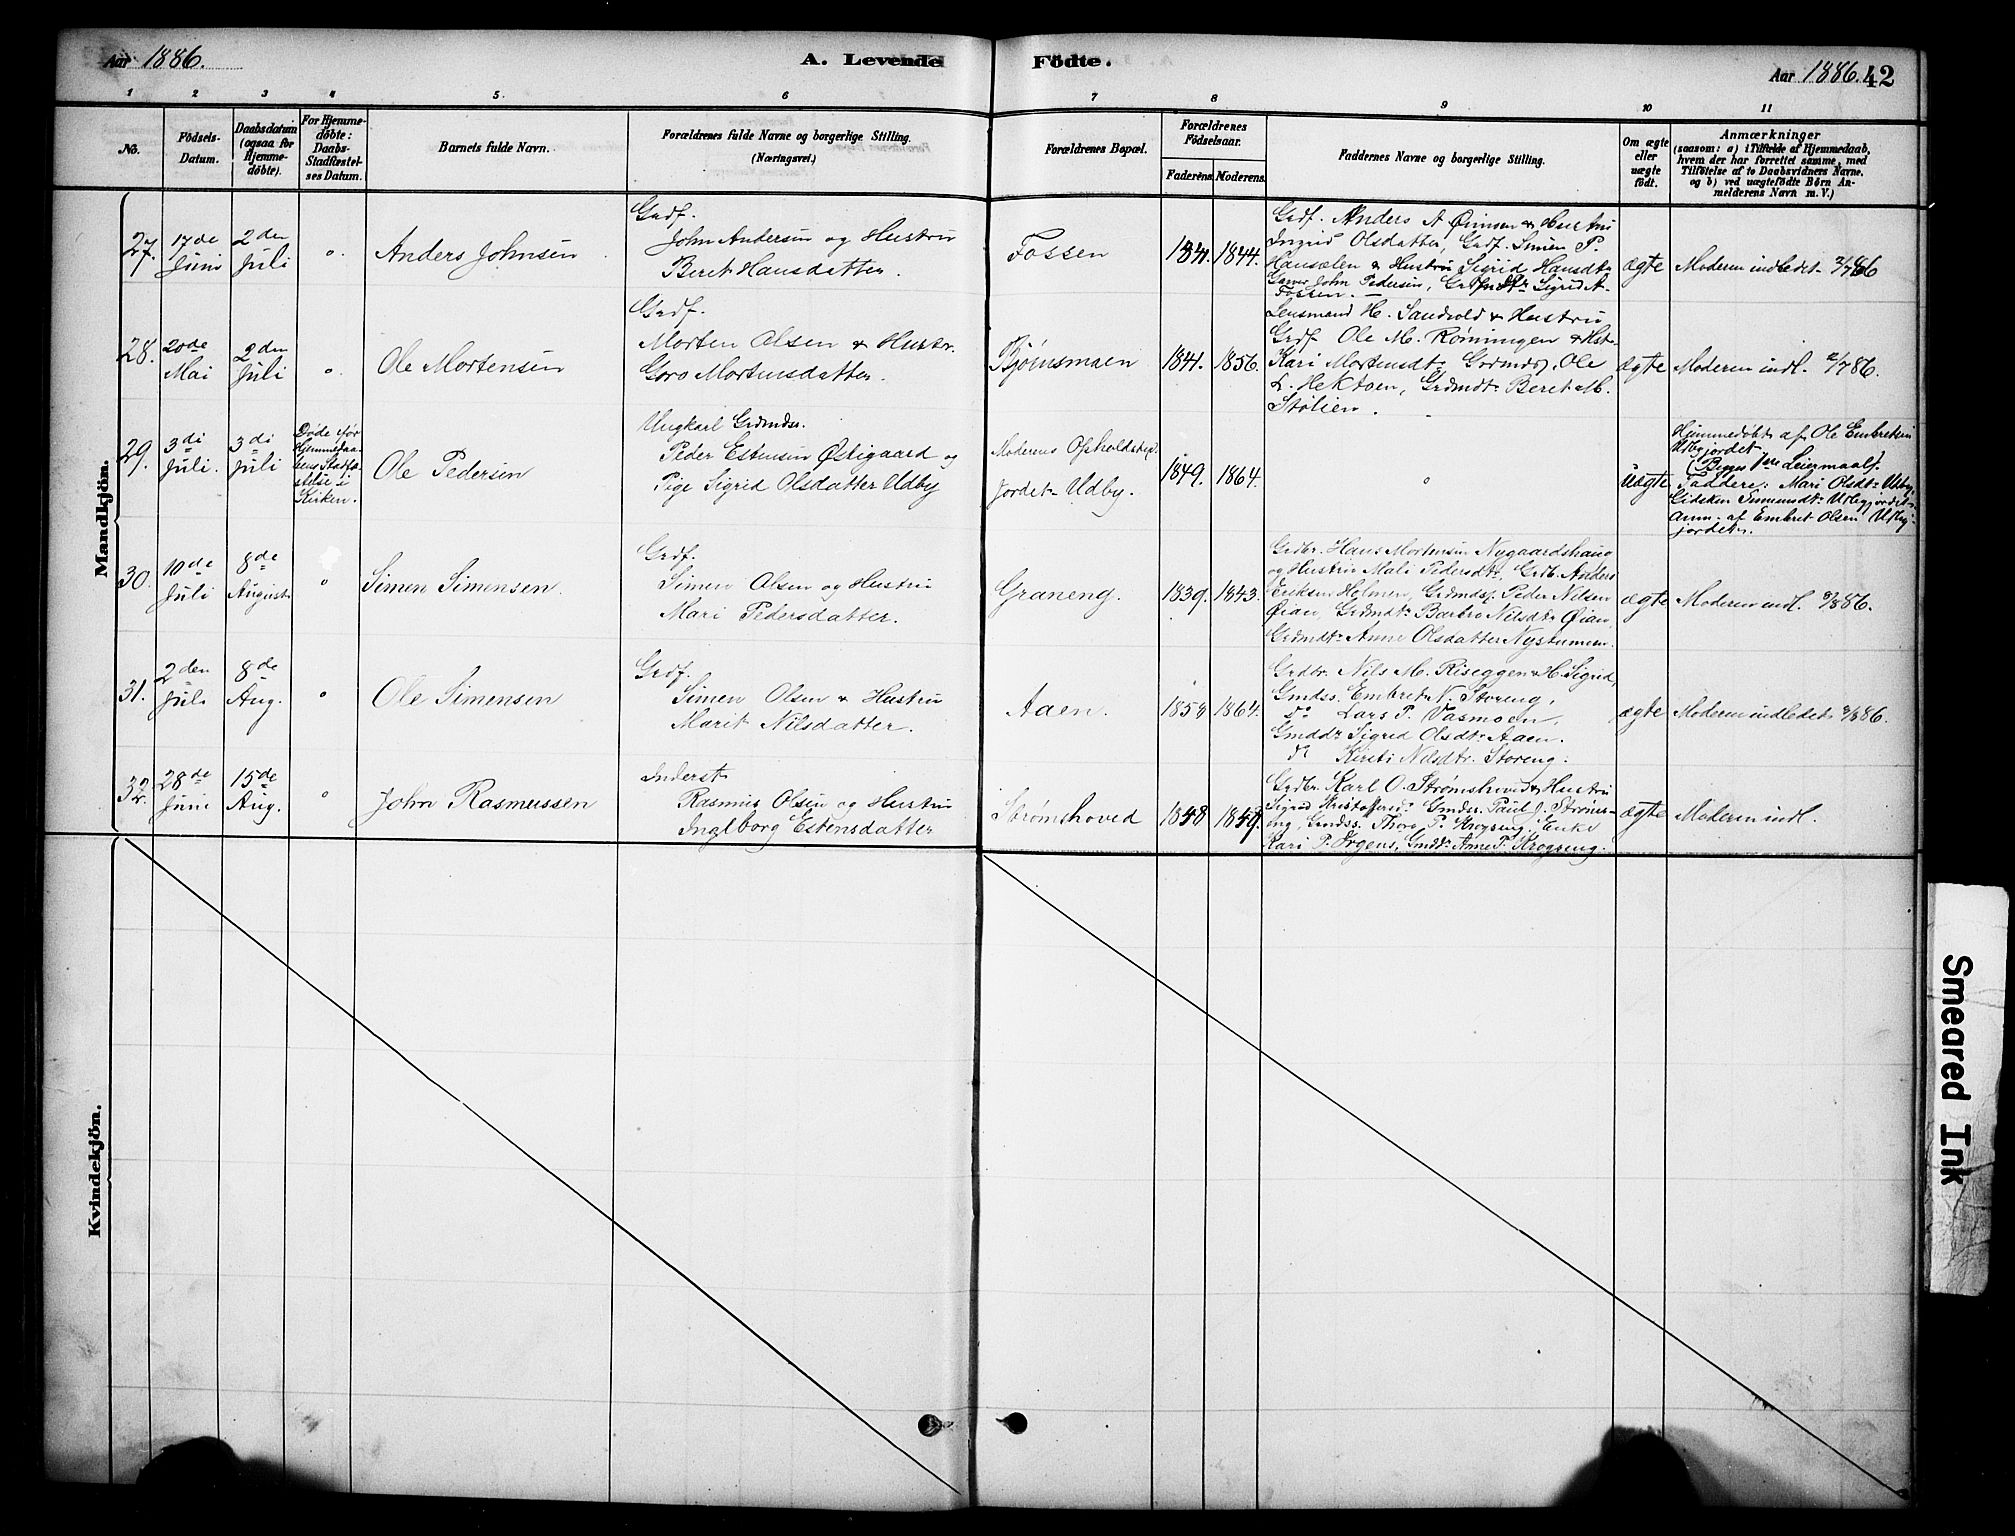 Aar 1886.
A. Levende Födte.
Aar 1886. 42
1 2 3 4 5. 6 7 8 9 10 11
No.
Födsels-
Datum.
Daabsdatum
(ogsaa for
Hjemme-
döbte).
For Hjemme-
döbte:
Daabs-
Stadfæstel-
ses Datum.
Barnets fulde Navn.
Forældrenes fulde Navne og borgerlige Stilling.
(Næringsvei.)
Forældrenes Bopæl.
Forældrenes
Födselsaar.
Faderens.
Moderens.
Faddernes Navne og borgerlige Stilling.
Om ægte
eller
uægte
födt.
Anmærkninger
(saasom: a) i Tilfælde af Hjemmedaab,
hvem der har forrettet samme, med
Tilföielse af to Daabsvidners Navne.
og b) ved uægtefödte Börn An-
melderens Navn m. V.)
Mandkjön.
27.
17de
Juni
2den
Juli
"
Anders Johnsen
Grdf.
John Andersen og Hustru
Beret Hansdatter.
Fossen
1841.
1844.
Grdf. Anders A. Øimoen & Hustru
Ingrid Olsdatter, Grdf. Simen P.
Hansælen & Hustru Sigrid Hansdtr
Garver John Pedersen, Sigrid A.
Fossen. —
ægte
Moderen indledet 2/7 86
28.
20de
Mai
2den
Juli
"
Ole Mortensen
Grdf.
Morten Olsen & Hustr.
Goro Mortensdatter.
Bjørnsmoen
1841.
1856.
Lensmand H. Sandvold & Hustru
Grdf Ole M. Rønningen & Hst.
Kari Mortensdtr Grdmds, Ole
L. Hektoen, Grdmdtr Beret M.
Stølien.
ægte
Moderen indl. 2/7 86.
29.
3di
Juli.
3di
Juli
Døde før
Hjemmedaa-
bens Stadfæ-
stelse i
Kirken.
Ole Pedersen
Ungkarl Grdmds.
Peder Estensen Østigaard og
Pige Sigrid Olsdatter Udby
Moderens Opholdsted
Jordet Udby.
1849.
1864.
"
uægte
Hjemmedøbt af Ole Embretsen
Udbyjordet.
(Begges 1ste Leiermaal).
Faddere: Mari Olsdtr Udby
Gidsken Simensdtr Udbyjordet
Anm. af Embret Olsen Udby-
jordet.
30.
10de
Juli
8de
August
"
Simen Simensen.
Grdf.
Simen Olsen og Hustru
Mari Pedersdatter.
Graneng.
1839.
1843.
Grdbr. Hans Mortensen Nygaardshaug
og Hustru Mali Pedersdtr, Grdb. Anders
Eriksen Holmen, Grdmds. Peder Nilsen
Øian, Grdmdtr Barbro Nilsdtr Øian,
Grdmdtr Anne Olsdatter Nystumoen.
ægte
Moderen indl. 8/8 86.
31.
2den
Juli
8de
Aug.
"
Ole Simensen
Grdf.
Simen Olsen & Hustru
Marit Nilsdatter.
Aaen.
1858
1864.
Grdbr. Nils M. Riseggen & H. Sigrid,
Gmdss. Embret N. Storeng,
do Lars P. Vasmoen,
Gmddr Sigrid Olsdtr Aaen.
do Kirsti Nilsdtr. Storeng.
ægte
Moderen indledet 8/8 86.
32.
28de
Juni
15de
Aug.
"
John Rasmussen
Inderst
Rasmus Olsen og Hustru
Ingeborg Estensdatter
Strømshoved
1848
1848.
Grdbr. Karl O. Strømshoved & Hustru
Sigrid Kristoffersdtr Gmdss. Paul J. Strøms-
eng, Gmdss. Thore P. Krogseng, Enke
Kari P. Ørgens, Gmddr Anne P. Krogseng.
ægte
Moderen indl.
Kvindekjön.
Smeared Ink